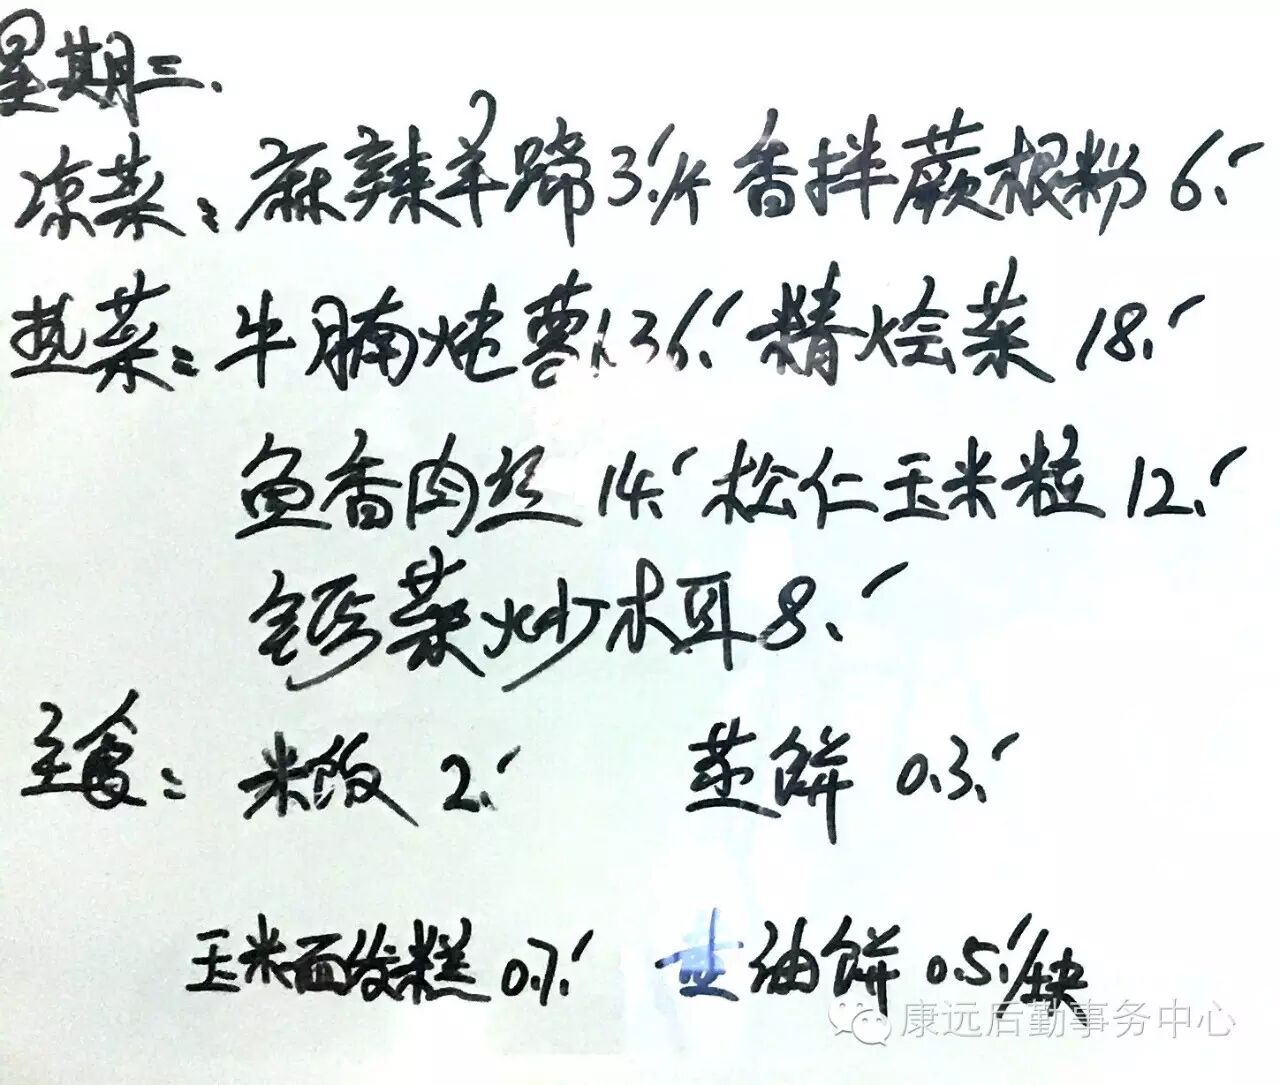 星期三.
凉菜: 麻辣羊蹄3.'/个 香拌蕨根粉 6.'
热菜: 牛腩炖萝卜36.' 精烩菜 18.'
鱼香肉丝 14.' 松仁玉米粒 12.'
钙菜炒木耳 8.'
主食: 米饭 2.' 蒸饼 0.3.'
玉米面发糕 0.7.' 油饼 0.5.'/块
康远后勤事务中心